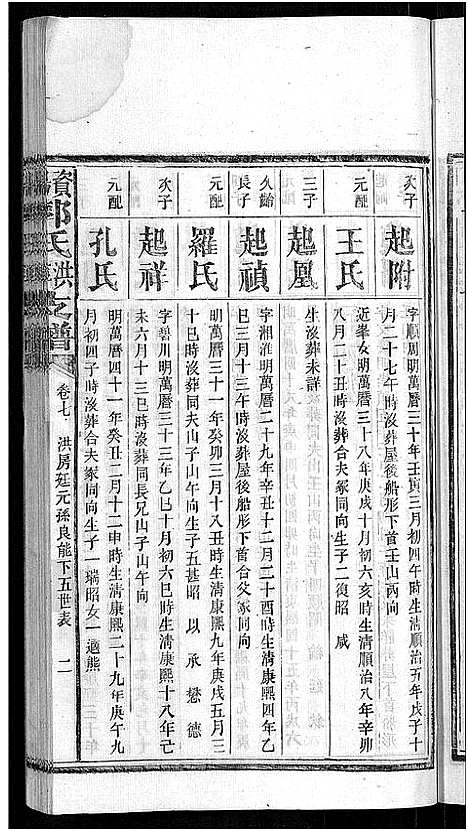 次子
起附
字順周明萬曆三十年壬寅三月初四午時生清順治五年戊子十
月二十七午時歿葬屋後船形下首壬山丙向
元配
王氏
近峯女明萬曆三十八年庚戌十月初六亥時生清順治八年辛卯
八月二十丑時歿葬合夫冢同向生子二復昭 咸
三子
起鳳
生歿葬未譜
久
長子
起禎
字湘淮明萬曆二十九年辛丑十二月二十酉時生清康熙四年乙
巳三月十三午時歿葬屋後船形下首合父冢同向
元配
羅氏
明萬曆三十一年癸卯三月十八丑時生清康熙九年庚戌五月三
十巳時歿葬同夫山子山午向生子五甚昭 以 承 懋 德
次子
起祥
字碧川明萬曆三十三年乙巳十月初六巳時生清康熙十八年己
未六月十三巳時歿葬同長兄山子山午向
元配
孔氏
明萬曆四十一年癸丑二月十二申時生清康熙二十九年庚午九
月初四子時歿葬合夫冢同向生子一瑞昭女一適熊
資 氏洪 之譜
卷七 洪房廷元孫良能下五世表 二